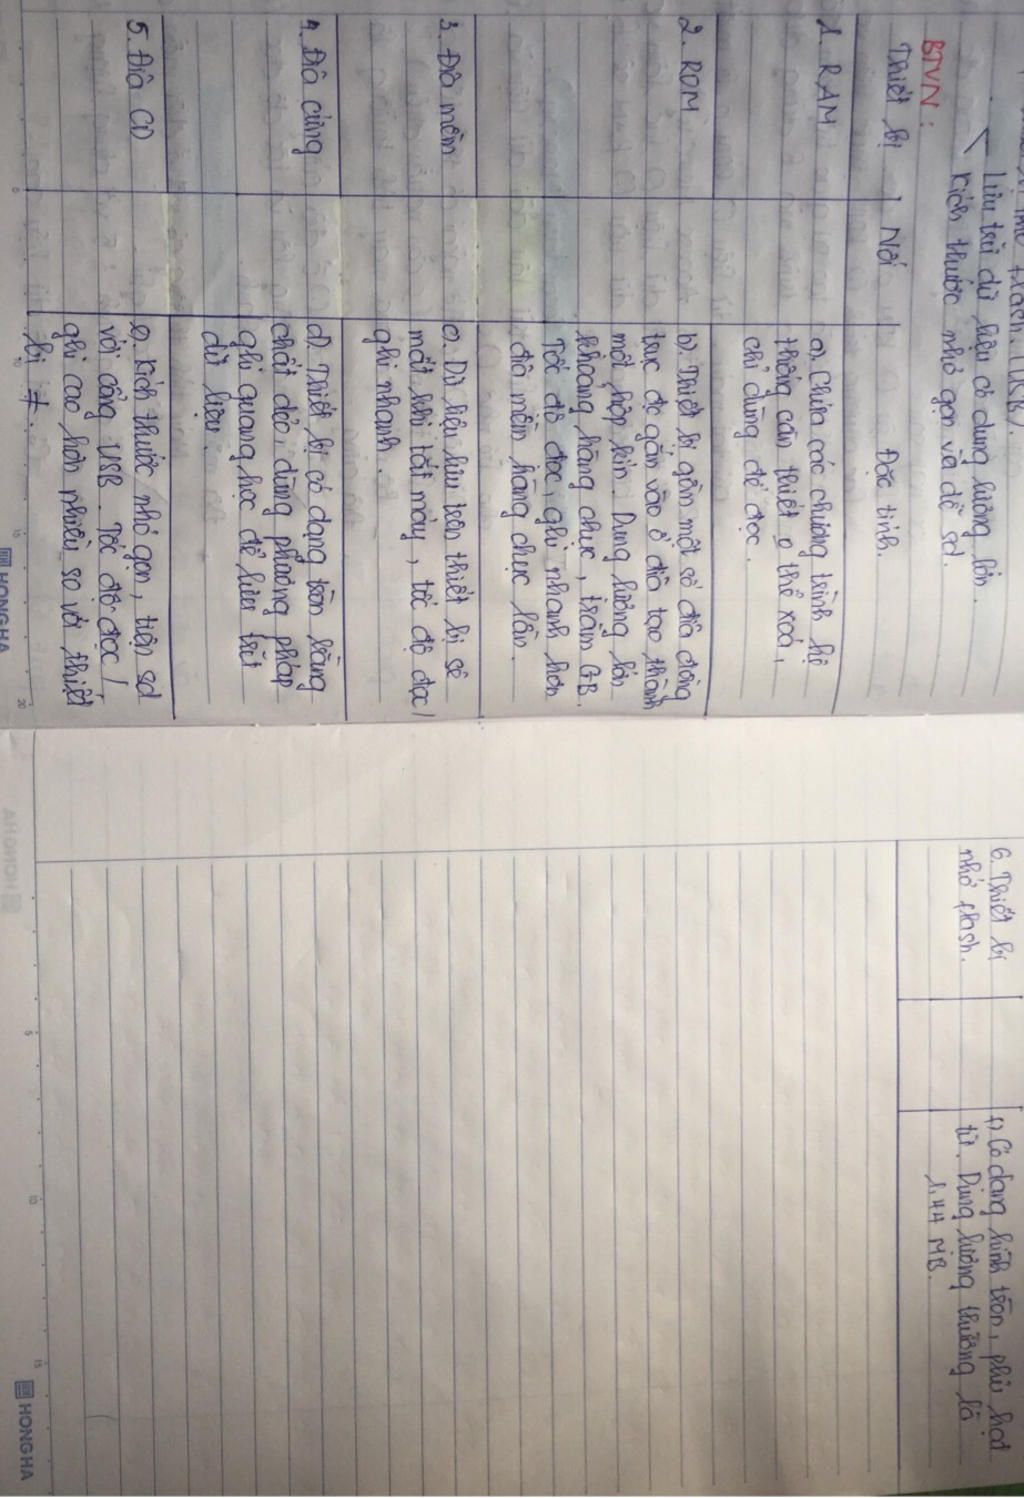 Lưu trữ dữ liệu có dung lượng lớn.
Kích thước nhỏ gọn và dễ sd.
BTVN:
Thiết bị
Nối
Đặc tính.
1. RAM
a). Chứa các chương trình hệ
thống cần thiết o thể xoá,
chỉ dùng để đọc.
2. ROM
b). Thiết bị gồm một số đĩa đồng
trục đc gắn vào ổ đĩa tạo thành
một hộp kín. Dung lượng lớn
khoảng hàng chục, trăm GB.
Tốc độ đọc, ghi nhanh hơn
đĩa mềm hàng chục lần.
3. Đĩa mềm
c). Dữ liệu lưu trên thiết bị sẽ
mất khi tắt máy, tốc độ đọc/
ghi nhanh.
4. Đĩa cứng
d). Thiết bị có dạng tròn bằng
chất dẻo, dùng phương pháp
ghi quang học để lưu trữ
dữ liệu.
5. Đĩa CD
e). Kích thước nhỏ gọn, tiện sd
với cổng USB. Tốc độ đọc/
ghi cao hơn nhiều so với thiết
bị ≠.
HONG HA
6. Thiết bị
nhớ flash.
f) Có dạng hình tròn, phủ hạt
từ. Dung lượng thường là
1.44 MB.
HONG HA